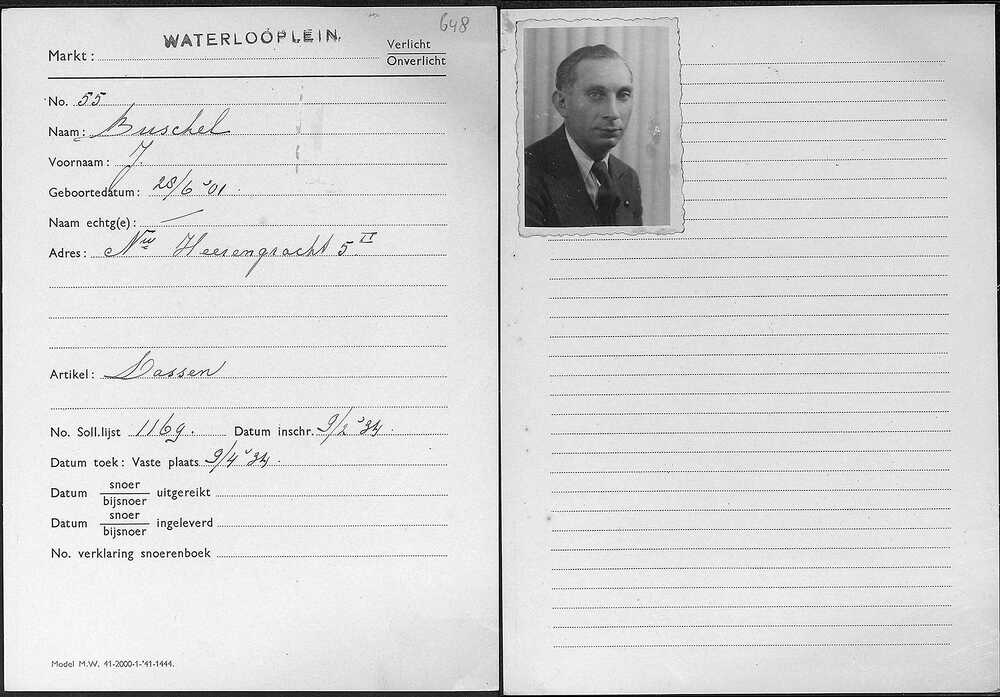 648
Markt: WATERLOOPLEIN. Verlicht
Onverlicht
No. 55
Naam: Buschel
Voornaam: J.
Geboortedatum: 28/6 '01.
Naam echtg(e): —
Adres: Nw Heerengracht 5 II
Artikel: Dassen
No. Soll.lijst 1169. Datum inschr. 9/2 '34.
Datum toek: Vaste plaats 9/4 '34.
Datum snoer
bijsnoer uitgereikt
Datum snoer
bijsnoer ingeleverd
No. verklaring snoerenboek
Model M.W. 41-2000-1-'41-1444.